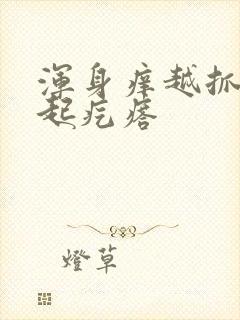 渾身痒越抓
起疙瘩
燈草